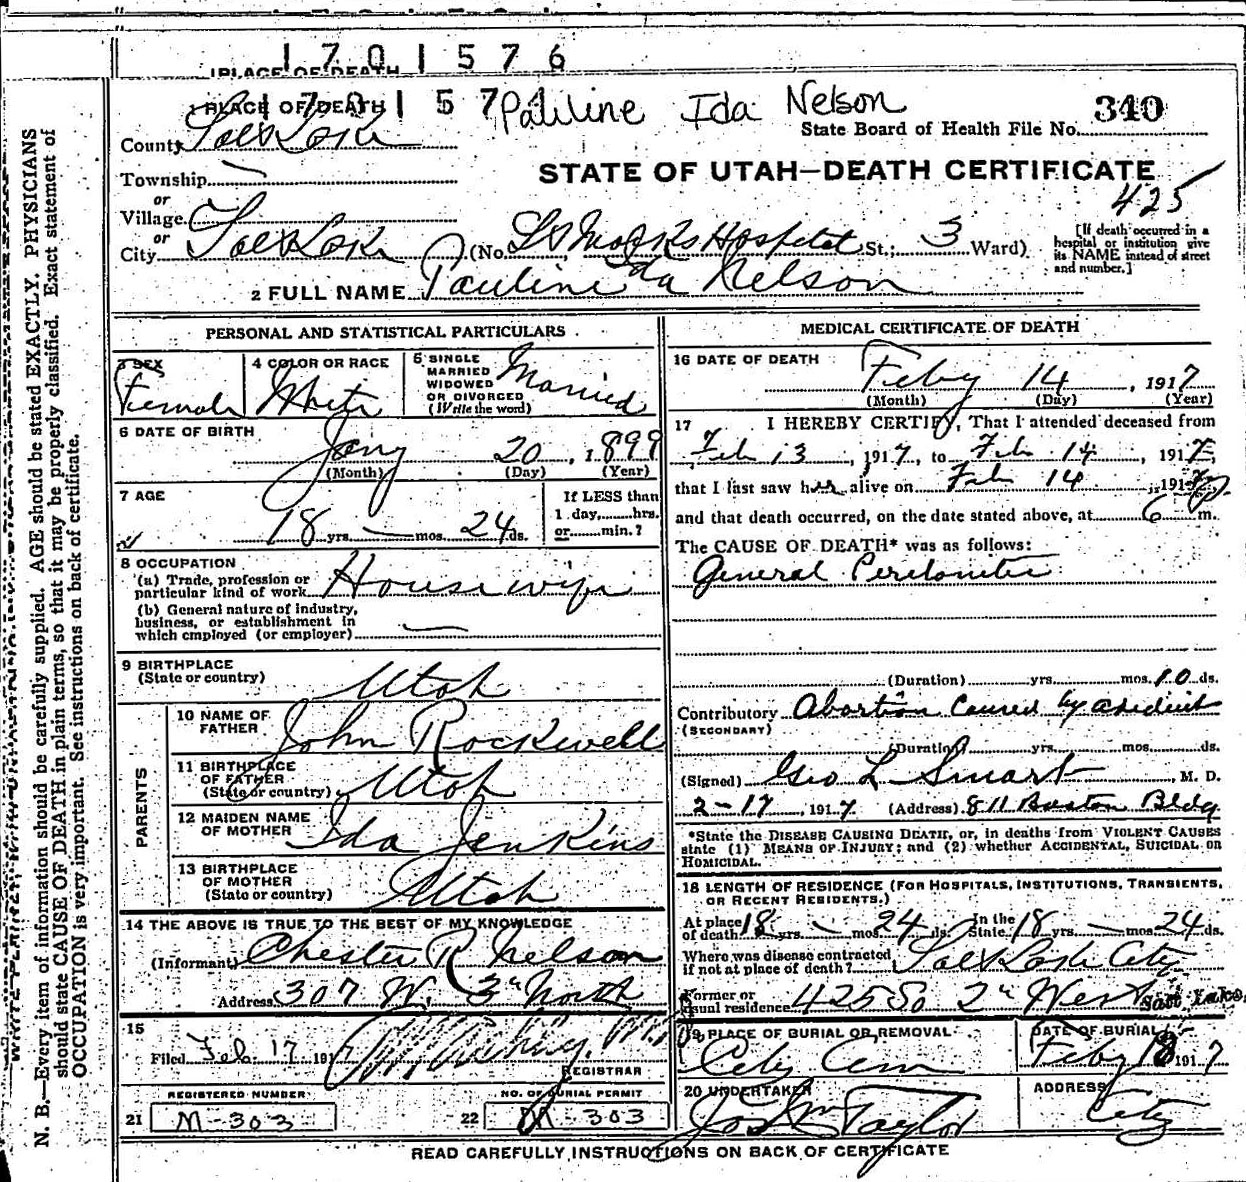 1701576
1 PLACE OF DEATH
1 PLACE OF DEATH 1 7 0 1 5 7 Pauline Ida Nelson 340
State Board of Health File No.
County Salt Lake
STATE OF UTAH—DEATH CERTIFICATE
Township
425
or
Village
or
City Salt Lake (No. St Marks Hospital St.; 3 Ward)
[If death occurred in a hospital or institution give its NAME instead of street and number.]
2 FULL NAME Pauline Ida Nelson
PERSONAL AND STATISTICAL PARTICULARS
3 SEX Female
4 COLOR OR RACE White
5 SINGLE MARRIED WIDOWED OR DIVORCED (Write the word) Married
6 DATE OF BIRTH
Jany 20, 1899
(Month) (Day) (Year)
7 AGE
18 yrs. — mos. 24 ds.
If LESS than
1 day,......hrs.
or......min.?
8 OCCUPATION
(a) Trade, profession or
particular kind of work Housewife
(b) General nature of industry,
business, or establishment in
which employed (or employer) —
9 BIRTHPLACE
(State or country) Utah
PARENTS
10 NAME OF
FATHER John Rockwell
11 BIRTHPLACE
OF FATHER
(State or country) Utah
12 MAIDEN NAME
OF MOTHER Ida Jenkins
13 BIRTHPLACE
OF MOTHER
(State or country) Utah
14 THE ABOVE IS TRUE TO THE BEST OF MY KNOWLEDGE
(Informant) Chester R Nelson
Address 307 W. 3rd North
15
Filed Feb. 17 1917
REGISTRAR
REGISTERED NUMBER
21 M-303
NO. OF BURIAL PERMIT
22 M-303
MEDICAL CERTIFICATE OF DEATH
16 DATE OF DEATH
Feby 14, 1917
(Month) (Day) (Year)
17 I HEREBY CERTIFY, That I attended deceased from
Feb 13, 1917, to Feb 14, 1917,
that I last saw her alive on Feb 14, 1917,
and that death occurred, on the date stated above, at 6 p m.
The CAUSE OF DEATH* was as follows:
General Peritonitis
(Duration) yrs. mos. 10 ds.
Contributory Abortion caused by accident
(SECONDARY)
(Duration) yrs. mos. ds.
(Signed) Geo L Smart, M. D.
2-17, 1917 (Address) 811 Boston Bldg
*State the DISEASE CAUSING DEATH, or, in deaths from VIOLENT CAUSES
state (1) MEANS OF INJURY; and (2) whether ACCIDENTAL, SUICIDAL OR
HOMICIDAL.
18 LENGTH OF RESIDENCE (FOR HOSPITALS, INSTITUTIONS, TRANSIENTS,
OR RECENT RESIDENTS.)
At place of death 18 yrs. — mos. 24 ds. In the State 18 yrs. — mos. 24 ds.
Where was disease contracted
if not at place of death? Salt Lake City
Former or
usual residence 425 So 2nd West Salt Lake
19 PLACE OF BURIAL OR REMOVAL
City Cem
DATE OF BURIAL
Feby 18 1917
20 UNDERTAKER
Jos Wm Taylor
ADDRESS
City
READ CAREFULLY INSTRUCTIONS ON BACK OF CERTIFICATE
N. B.—Every item of information should be carefully supplied. AGE should be stated EXACTLY. PHYSICIANS
should state CAUSE OF DEATH in plain terms, so that it may be properly classified. Exact statement of
OCCUPATION is very important. See instructions on back of certificate.